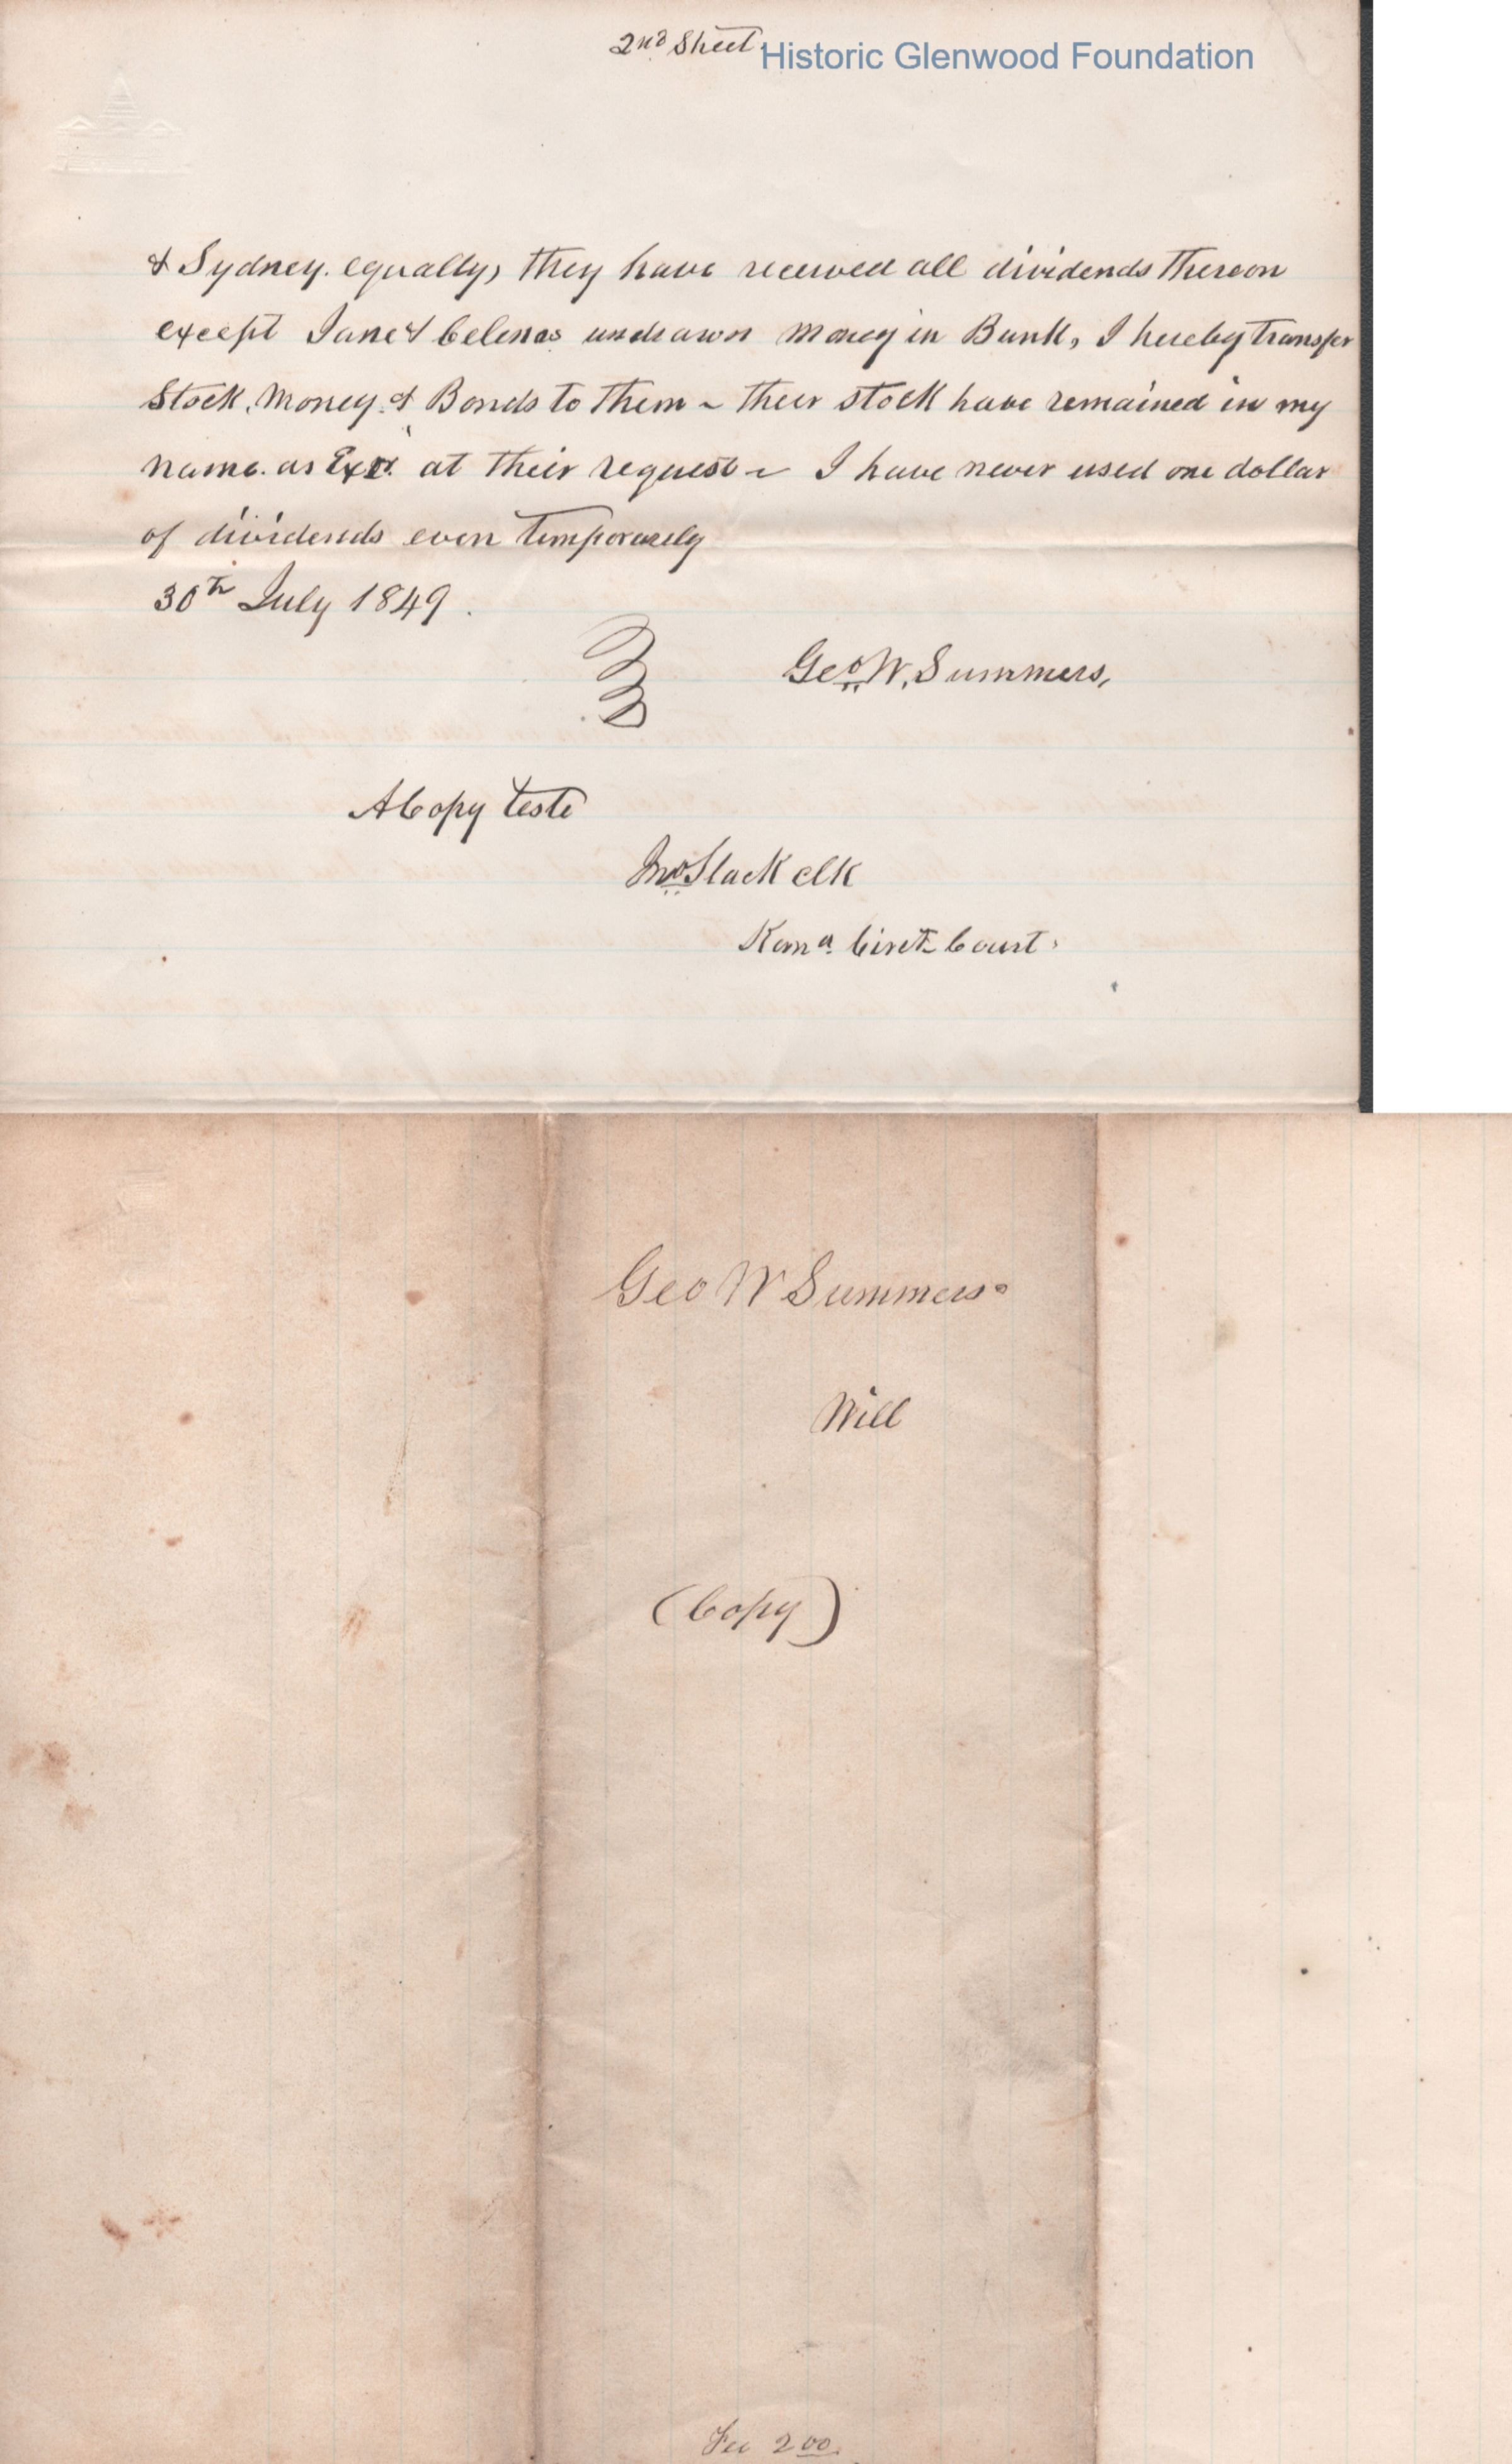 2nd Sheet.
Historic Glenwood Foundation
& Sydney. equally, they have received all dividends thereon
except Jane & Celenas undrawn money in Bank, I hereby transfer
Stock, Money, & Bonds to them ~ their stock have remained in my
name. as Exr. at their request ~ I have never used one dollar
of dividends even temporarely
30th July 1849.
Geo W. Summers,
A Copy teste
Jno Slack clk
Kana. Circt Court.
Geo W Summers
Will
(Copy)
Fee 200